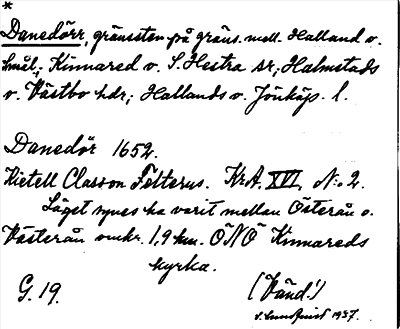 *
Danedörr, gränssten på gräns. mell. Halland o.
Smål.; Kinnared o. S. Hestra sr; Halmstads
o. Västbo hdr; Hallands o. Jönköp. l.
Danedör 1652.
Kietell Classon Felterus. Kr.A. XVI, N:o 2.
Läget synes ha varit mellan Österån o.
Västerån omkr. 1,9 km. ÖNÖ Kinnareds
kyrka.
G. 19.
(Vänd!)
I. Lundquist 1937.